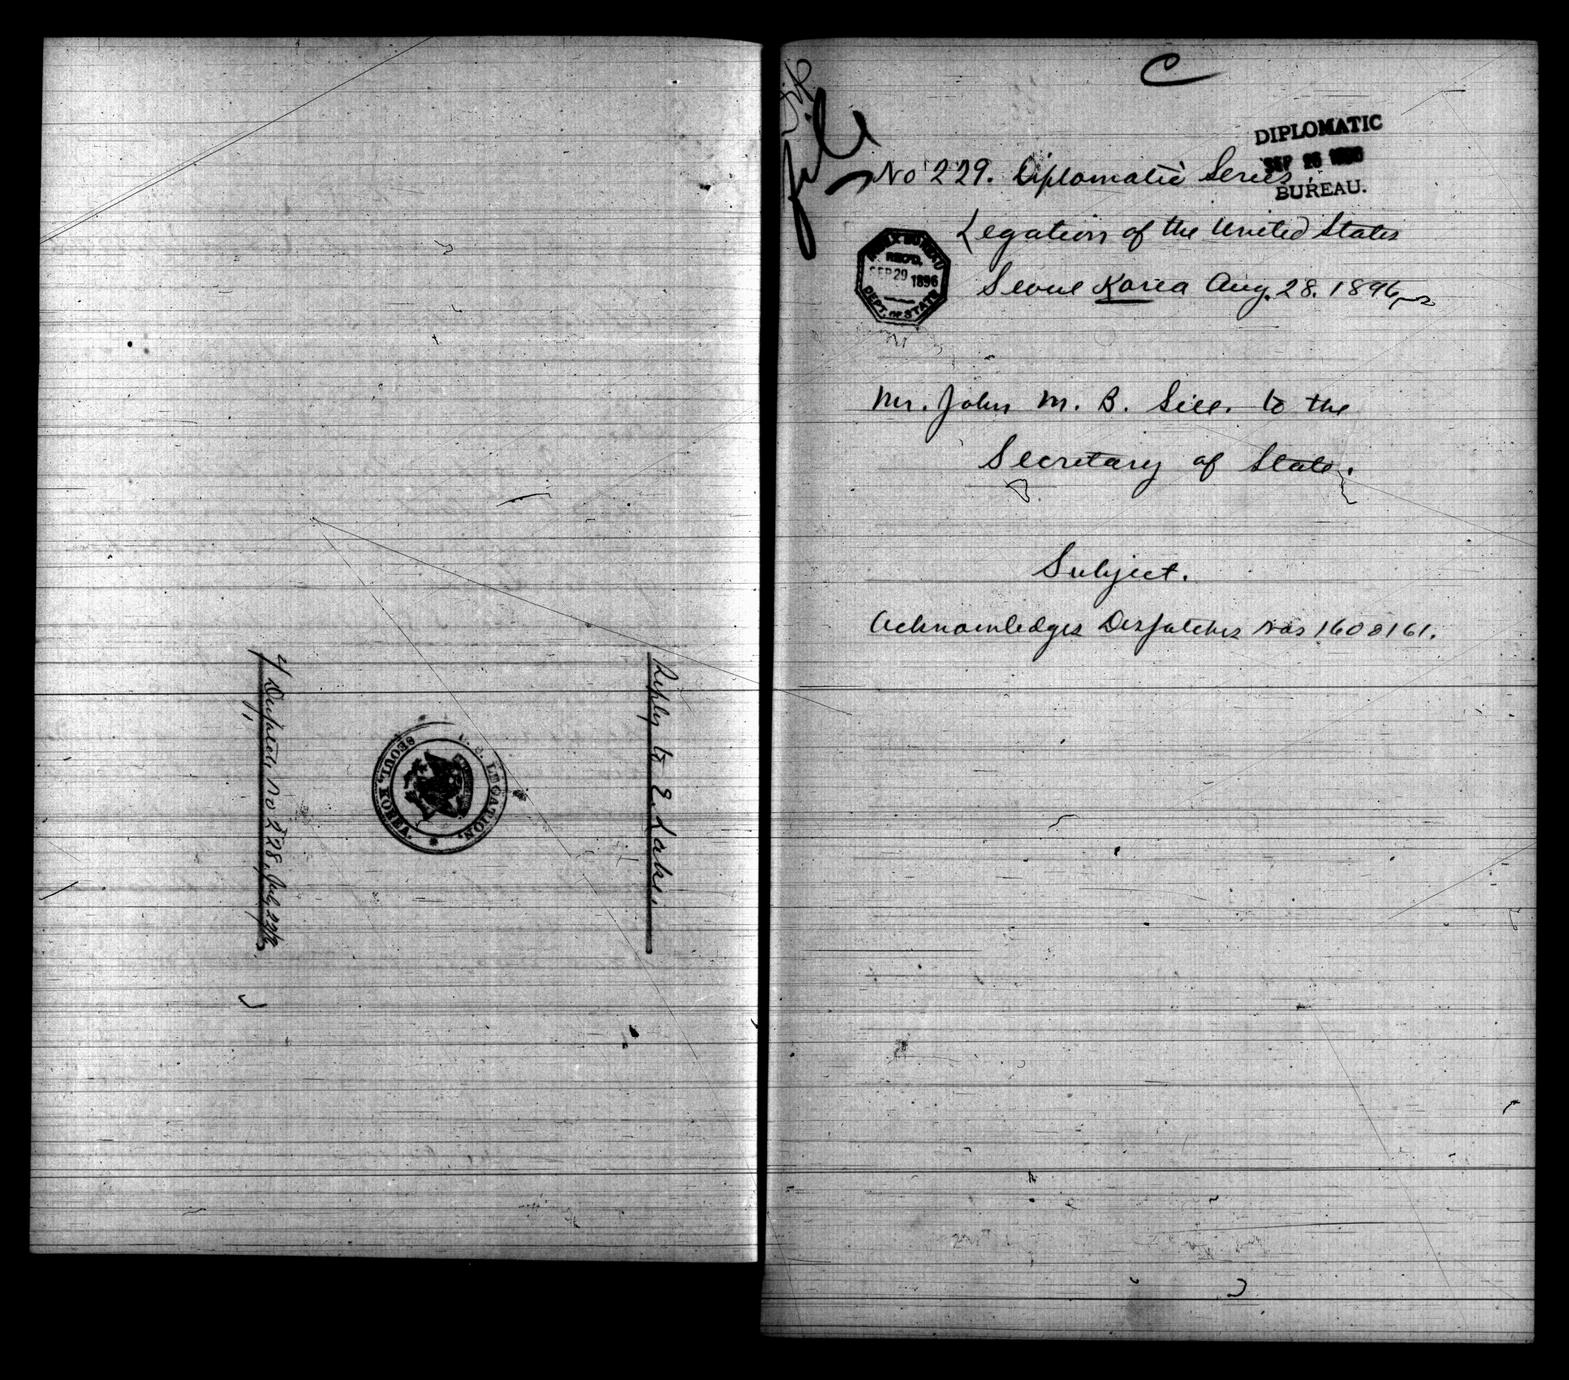 Reply to E. Lake.
U. S. LEGATION,
SEOUL, KOREA.
Dispatch No 228, July 22/96
C
file
DIPLOMATIC
SEP 28 1896
BUREAU.
No 229. Diplomatic Series
Legation of the United States
Seoul Korea Aug. 28. 1896
INDEX BUREAU
REC'D.
SEP 29 1896
DEPT. OF STATE
Mr. John M. B. Sill. to the
Secretary of State.
Subject.
Acknowledges Despatches Nos 160 & 161.